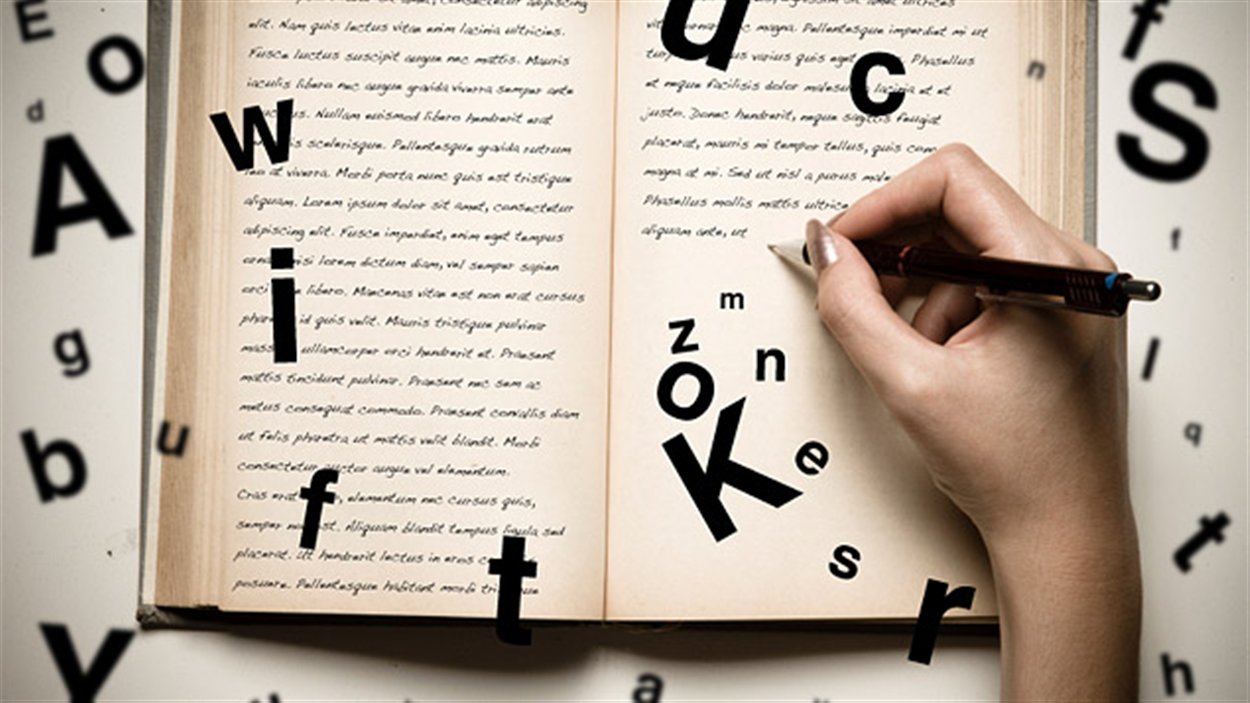 elit. Nam quis lectus vitae enim lacinia ultricies.
Fusce luctus suscipit augue nec mattis. Mauris
iaculis libero nec augue gravida viverra semper ante
Nullam euismod libero hendrerit erat
scelerisque. Pellentesque gravida rutrum
leo at viverra. Morbi porta nunc quis est tristique
aliquam. Lorem ipsum dolor sit amet, consectetur
adipiscing elit. Fusce imperdiet, enim eget tempus
lorem dictum diam, vel semper sapien
orci libero. Maecenas vitae est non erat cursus
id quis velit. Mauris tristique pulvinar
ullamcorper orci hendrerit et. Praesent
mattis tincidunt pulvinar. Praesent nec sem ac
metus consequat commodo. Praesent convallis diam
ut felis pharetra ut mattis velit blandit. Morbi
consectetur auctor augue vel elementum.
Cras erat elementum nec cursus quis,
semper Aliquam blandit tempus ligula sed
placerat. Ut hendrerit lectus in eros
posuere. Pellentesque habitant morbi
magna. Pellentesque imperdiet mi ut
varius quis eget Phasellus
et neque facilisis dolor lacinia et et
justo. Donec hendrerit, neque sagittis feugiat
placerat, mauris mi tempor tellus, quis
magna at mi. Sed ut nisl a purus
Phasellus mollis mattis
aliquam ante, ut
E
o
d
A
g
b
u
y
w
i
f
t
u
c
n
m
z
n
o
K
e
s
r
a
f
S
f
l
q
t
h